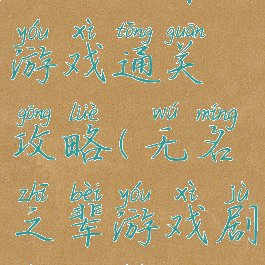 yóu xì tōng guān
游戏通关
gōng lüè wú míng
攻略(无名
zhī bèi yóu xì jù
之辈游戏剧